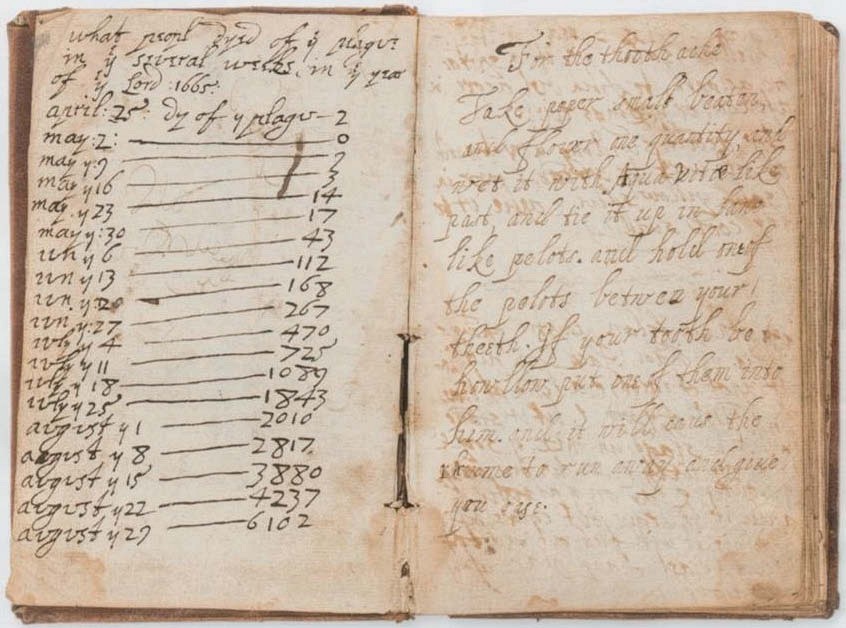 what peopl dyed of ẏ plague
in ẏ several weeks, in ẏ year
of ẏ Lord :1665:
april: 25: dy of y plagu - 2
may: 2: 0
may y: 9 9
may y 16 3
may. y 23 14
may y: 30 17
iun y 6 43
iun y 13 112
iun. y: 20 168
iun y: 27 267
iuly y 4 470
iuly y 11 725
iuly y 18 1089
iuly y 25 1843
avgvst y 1 2010
avgvst y 8 2817
avgvst y 15 3880
avgvst y 22 4237
avgvst y 29 6102
For the thooth ache
Take peper small beaten,
and flower one quantity, and
wet it with Aqua vitæ like
past, and tie it up in
like pelots. and hold one of
the pelots betwen your
theeth. If your tooth be
howllow put one of them into
him. and it will caus the
rheume to run away and give
you ease.